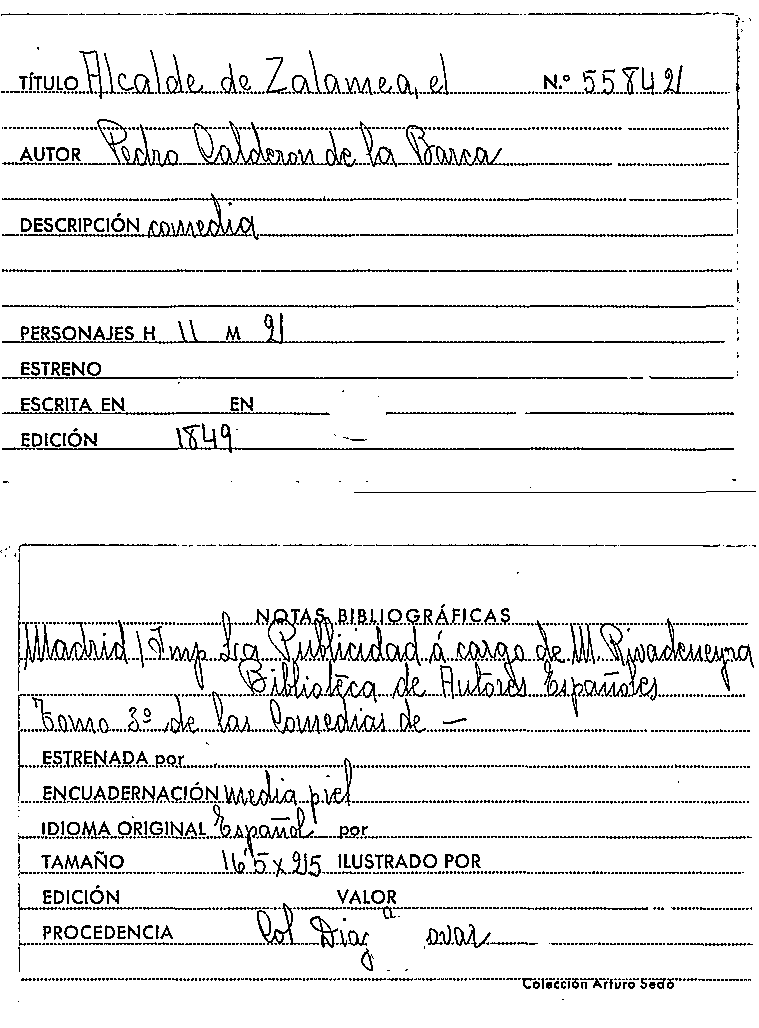 TÍTULO Alcalde de Zalamea, el N.º 55842
AUTOR Pedro Calderon de la Barca
DESCRIPCIÓN comedia
PERSONAJES H 11 M 2
ESTRENO
ESCRITA EN EN
EDICIÓN 1849 —
NOTAS BIBLIOGRÁFICAS
Madrid / Imp La Publicidad á cargo de M. Rivadeneyra
Biblioteca de Autores Españoles
Tomo 3º de las Comedias de —
ESTRENADA por
ENCUADERNACIÓN media piel
IDIOMA ORIGINAL Español por
TAMAÑO 16'5 x 25 ILUSTRADO POR
EDICIÓN VALOR
PROCEDENCIA Col Diaz ovar
Colección Arturo Sedó